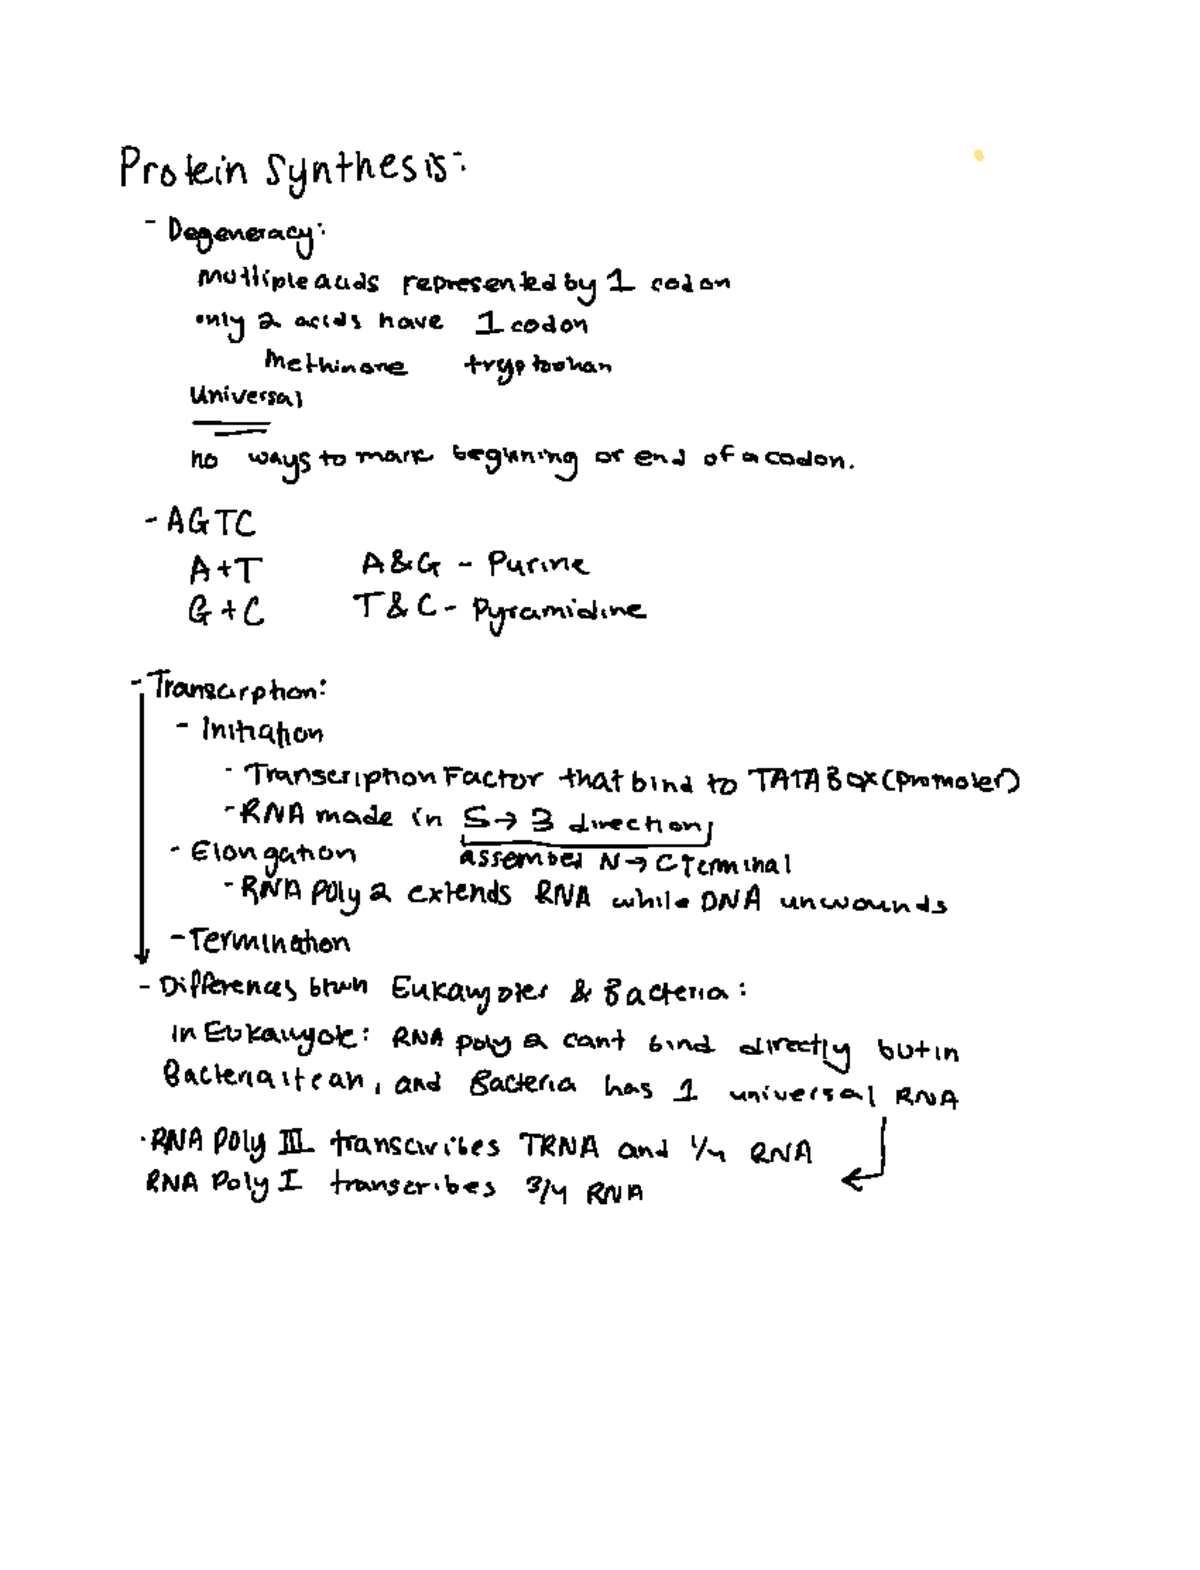 Protein Synthesis:
- Degeneracy:
multiple acids represented by 1 codon
only 2 acids have 1 codon
Methinone tryptophan
Universal
no ways to mark beginning or end of a codon.
- AGTC
A+T A&G - Purine
G+C T&C - Pyramidine
- Transcription:
- Initiation
- Transcription Factor that bind to TATA Box (promoter)
- RNA made in 5→3 direction
- Elongation assembled N→C Terminal
- RNA Poly 2 extends RNA while DNA unwounds
- Termination
- Differences btwn Eukaryotes & Bacteria:
in Eukaryote: RNA poly 2 cant bind directly but in
Bacteria it can, and Bacteria has 1 universal RNA
· RNA Poly III transcribes TRNA and 1/4 RNA
RNA Poly I transcribes 3/4 RNA